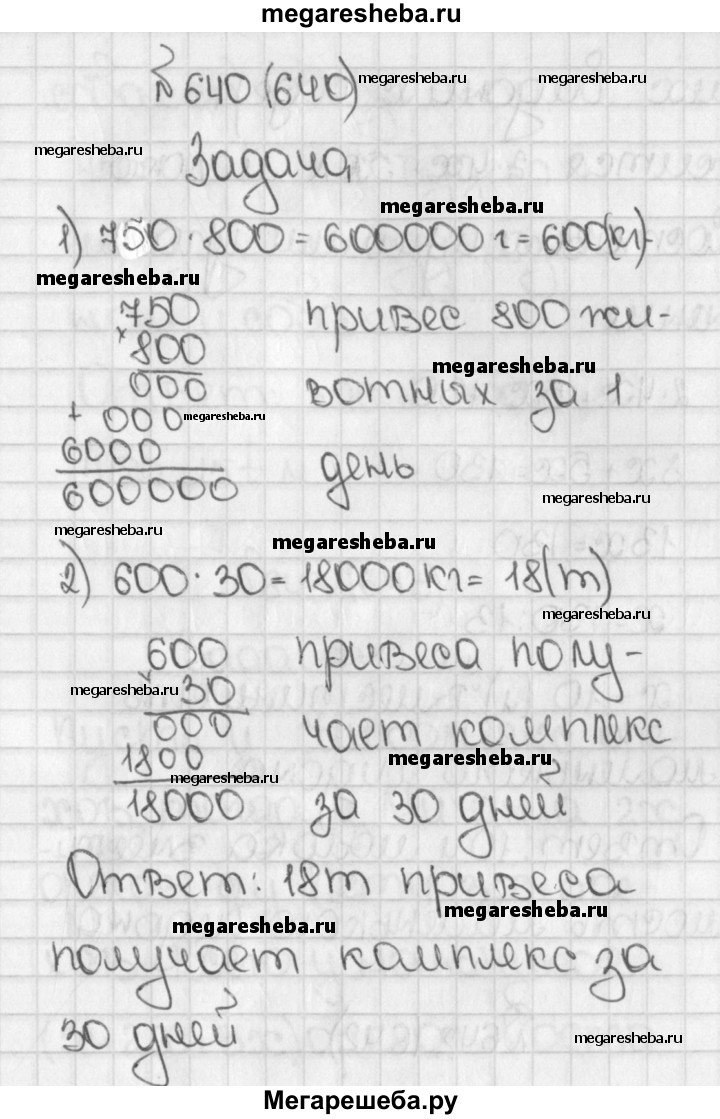 megaresheba.ru
№ 640 (640) megaresheba.ru megaresheba.ru
megaresheba.ru Задача.
megaresheba.ru
1) 750 · 800 = 600000 г = 600(кг)-
megaresheba.ru
750 привес 800 жи-
× 800 megaresheba.ru
000 вотных за 1
+ 000 megaresheba.ru
6000 день
600000 megaresheba.ru
megaresheba.ru megaresheba.ru
2) 600 · 30 = 18000 кг = 18(т)
megaresheba.ru
600 привеса полу-
megaresheba.ru × 30
000 чает комплекс
1800 megaresheba.ru megaresheba.ru
18000 за 30 дней
Ответ: 18т привеса
megaresheba.ru megaresheba.ru
получает комплекс за
30 дней megaresheba.ru
Мегарешеба.ру